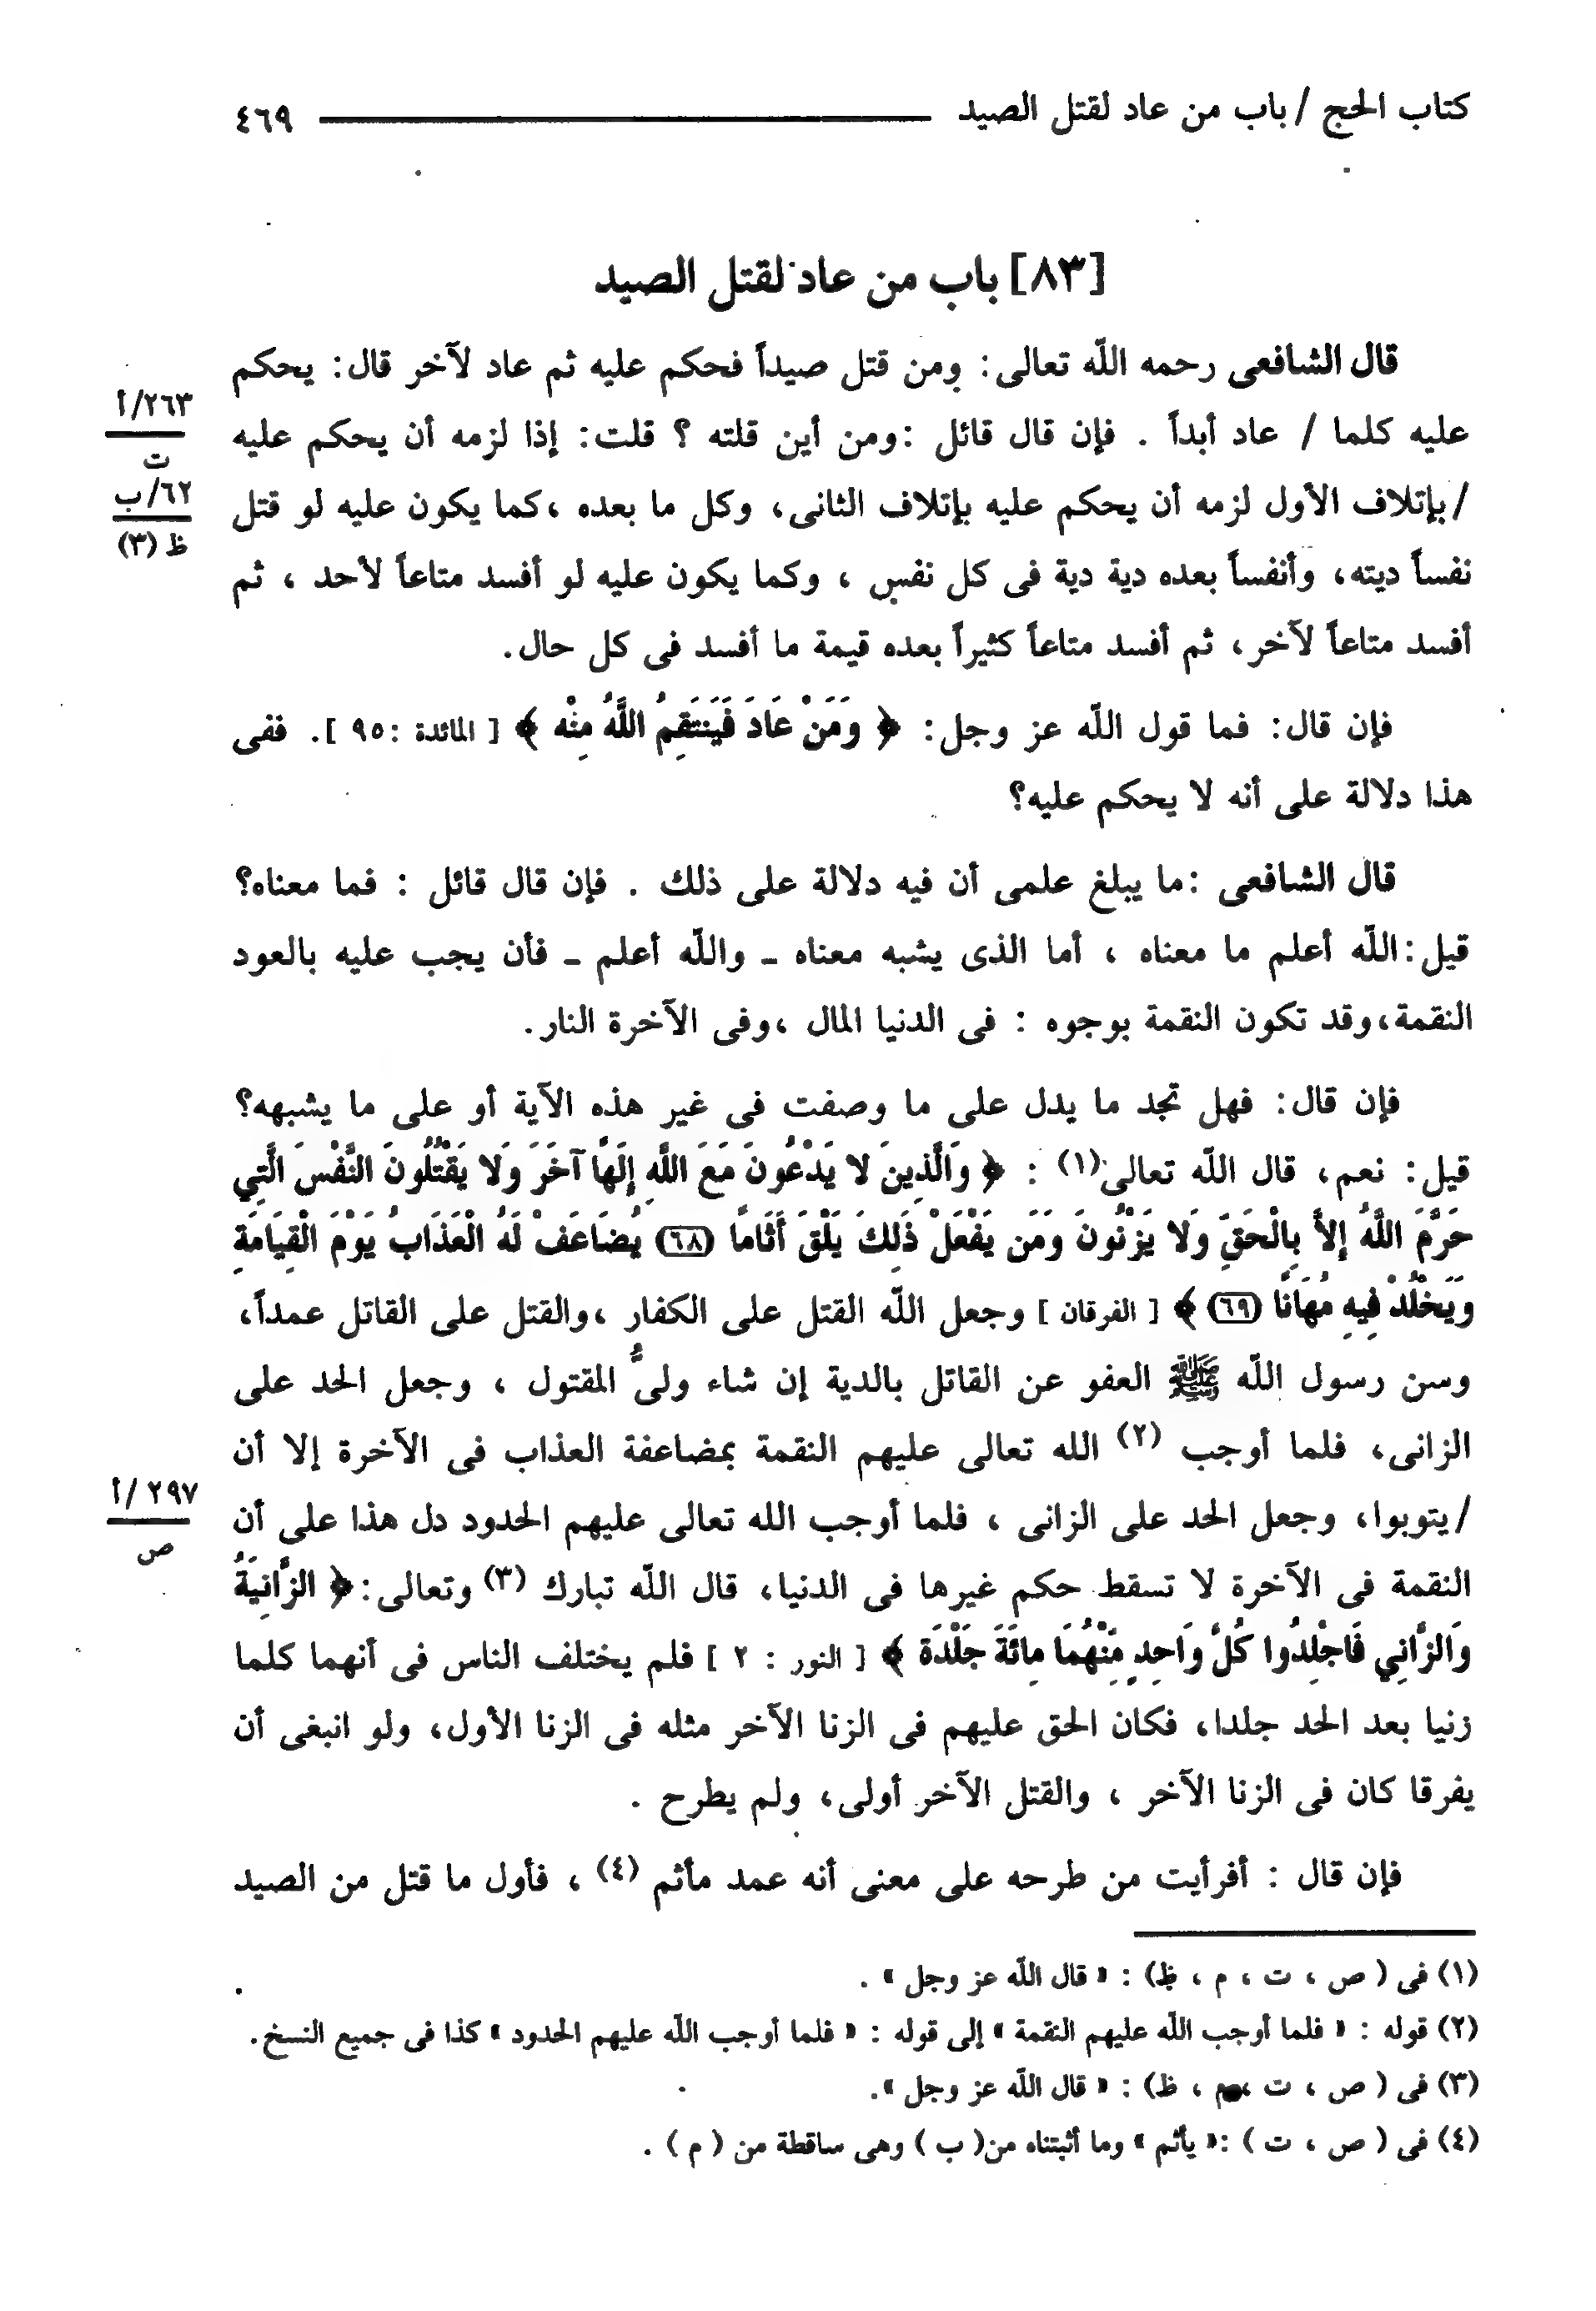 كتاب الحج / باب من عاد لقتل الصيد ٤٦٩
[٨٣] باب من عاد لقتل الصيد
قال الشافعى رحمه اللّه تعالى: ومن قتل صيداً فحكم عليه ثم عاد لآخر قال: يحكم
عليه كلما / عاد أبداً . فإن قال قائل :ومن أين قلته ؟ قلت: إذا لزمه أن يحكم عليه
/بإتلاف الأول لزمه أن يحكم عليه بإتلاف الثانى، وكل ما بعده ،كما يكون عليه لو قتل
نفساً ديته، وأنفساً بعده دية دية فى كل نفس ، وكما يكون عليه لو أفسد متاعاً لأحد ، ثم
أفسد متاعاً لآخر، ثم أفسد متاعاً كثيراً بعده قيمة ما أفسد فى كل حال.
٢٦٣/أ
ت
٦٢/ب
ظ (٣)
فإن قال: فما قول اللّه عز وجل: ﴿ وَمَنْ عَادَ فَيَنتَقِمُ اللَّهُ مِنْه ﴾ [ المائدة :٩٥ ]. ففى
هذا دلالة على أنه لا يحكم عليه؟
قال الشافعى :ما يبلغ علمى أن فيه دلالة على ذلك . فإن قال قائل : فما معناه؟
قيل:اللّه أعلم ما معناه ، أما الذى يشبه معناه ــ واللّه أعلم ــ فأن يجب عليه بالعود
النقمة،وقد تكون النقمة بوجوه : فى الدنيا المال ،وفى الآخرة النار.
فإن قال: فهل تجد ما يدل على ما وصفت فى غير هذه الآية أو على ما يشبهه؟
قيل: نعم، قال اللّه تعالى(١) : ﴿ وَالَّذِينَ لا يَدْعُونَ مَعَ اللَّهِ إِلَهًا آخَرَ وَلا يَقْتُلُونَ النَّفْسَ الَّتِي
حَرَّمَ اللَّهُ إِلاَّ بِالْحَقِّ وَلا يَزْنُونَ وَمَن يَفْعَلْ ذَلِكَ يَلْقَ أَثَامًا (٦٨) يُضَاعَفْ لَهُ الْعَذَابُ يَوْمَ الْقِيَامَةِ
وَيَخْلُدْ فِيهِ مُهَانًا (٦٩) ﴾ [ الفرقان ] وجعل اللّه القتل على الكفار ،والقتل على القاتل عمداً،
وسن رسول اللّه ﷺ العفو عن القاتل بالدية إن شاء ولىُّ المقتول ، وجعل الحد على
الزانى، فلما أوجب (٢) الله تعالى عليهم النقمة بمضاعفة العذاب فى الآخرة إلا أن
/يتوبوا، وجعل الحد على الزانى ، فلما أوجب الله تعالى عليهم الحدود دل هذا على أن
٢٩٧ /أ
ص
النقمة فى الآخرة لا تسقط حكم غيرها فى الدنيا، قال اللّه تبارك (٣) وتعالى:﴿ الزَّانِيَةُ
وَالزَّانِي فَاجْلِدُوا كُلَّ وَاحِدٍ مِّنْهُمَا مِائَةَ جَلْدَة ﴾ [ النور : ٢ ] فلم يختلف الناس فى أنهما كلما
زنيا بعد الحد جلدا، فكان الحق عليهم فى الزنا الآخر مثله فى الزنا الأول، ولو انبغى أن
يفرقا كان فى الزنا الآخر ، والقتل الآخر أولى، ولم يطرح .
فإن قال : أفرأيت من طرحه على معنى أنه عمد مأثم (٤) ، فأول ما قتل من الصيد
(١) فى ( ص ، ت ، م ، ظ) : « قال اللّه عز وجل » .
(٢) قوله : « فلما أوجب اللّه عليهم النقمة » إلى قوله : « فلما أوجب اللّه عليهم الحدود » كذا فى جميع النسخ.
(٣) فى ( ص ، ت ، م ، ظ) : « قال اللّه عز وجل ».
(٤) فى ( ص ، ت ) :« يأثم » وما أثبتناه من( ب ) وهى ساقطة من ( م ) .